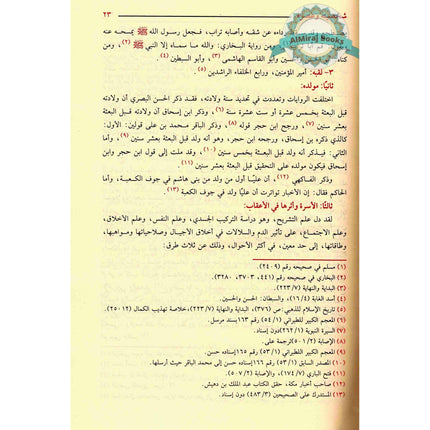 ٢٣
AlMiraj Books
رداءه عن شقه وأصابه تراب، فجعل رسول الله ﷺ يمسحه عنه
من رواية البخاري: والله ما سماه إلا النبي ﷺ (٢)، ومن
والحسين وأبو القاسم الهاشمي (٣)، وأبو السبطين (٤).
٣- لقبه: أمير المؤمنين، ورابع الخلفاء الراشدين (٥).
ثانيًا: مولده:
اختلفت الروايات وتعددت في تحديد سنة ولادته، فقد ذكر الحسن البصري أن ولادته
قبل البعثة بخمس عشرة أو ست عشرة سنة (٦)، وذكر ابن إسحاق أن ولادته قبل البعثة
بعشر سنين (٧)، ورجح ابن حجر قوله (٨)، وذكر الباقر محمد بن علي قولين: الأول:
كالذي ذكره بن إسحاق، ورجحه ابن حجر، وهو أنه ولد قبل البعثة بعشر سنين (٩)، وأما
الثاني: فيذكر أنه ولد قبل البعثة بخمس سنين (١٠)، وقد ملت إلى قول ابن حجر وابن
إسحاق فيكون مولده على التحقيق قبل البعثة بعشر سنين (١١).
وذكر الفاكهي (١٢)، أن عليًا أول من ولد من بني هاشم في جوف الكعبة، وأما
الحاكم فقال: إن الأخبار تواترت أن عليًا ولد في جوف الكعبة (١٣).
ثالثًا: الأسرة وأثرها في الأعقاب:
لقد دل علم التشريح، وهو دراسة التركيب الجسدي، وعلم النفس، وعلم الأخلاق،
وعلم الاجتماع، على تأثير الدم والسلالات في أخلاق الأجيال وصلاحياتها ومواهبها،
وطاقاتها، إلى حد معين، في أكثر الأحوال، وذلك عن ثلاث طرق:
(١) مسلم في صحيحه رقم (٢٤٠٩)
(٢) البخاري في صحيحه رقم (٤٤١، ٣٧٠٣، ٣٢٨٠)
(٣) البداية والنهاية (٢٢٣/٧)
(٤) أسد الغابة (١٦/٤)، والسبطان: الحسن والحسين.
(٥) تاريخ الإسلام للذهبي: ص (٣٧٦)، والبداية والنهاية (٢٢٣/٧)، خلاصة تهذيب الكمال (٢٥٠١٢).
(٦) المعجم الكبير للطبراني (٥٤/١) رقم ١٦٣ بسند مرسل.
(٧) السيرة النبوية (٢٦٢/١) دون إسناد.
(٨) الإصابة (٥٠١/٢) ترجمة على.
(٩) المعجم الكبير للطبراني (٥٣/١) رقم ١٦٥ إسناده حسن.
(١٠) المصدر السابق (٥٣/١) رقم ١٦٦ إسناده حسن إلى محمد الباقر حيث أرسلها.
(١١) فتح الباري (١٧٤/٧)، والإصابة (٥٠٧/٢).
(١٢) صاحب أخبار مكة، حقق الكتاب عبد الملك بن دهيش.
(١٣) المستدرك على الصحيحين (٤٨٣/٣) دون إسناد.